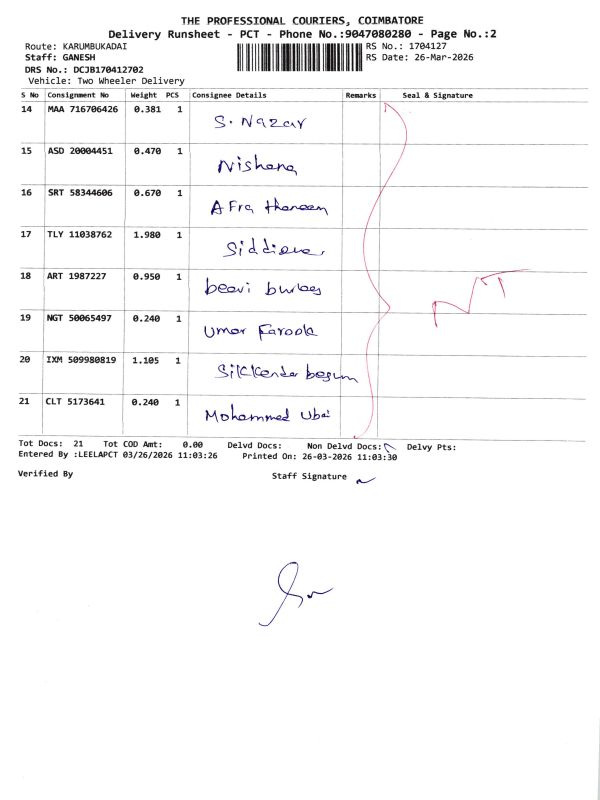 THE PROFESSIONAL COURIERS, COIMBATORE
Delivery Runsheet - PCT - Phone No.:9047080280 - Page No.:2
Route: KARUMBUKADAI RS No.: 1704127
Staff: GANESH RS Date: 26-Mar-2026
DRS No.: DCJB170412702
Vehicle: Two Wheeler Delivery
S No Consignment No Weight PCS Consignee Details Remarks Seal & Signature
14 MAA 716706426 0.381 1 S. Nazar
15 ASD 20004451 0.470 1 Nishana
16 SRT 58344606 0.670 1 Afra
17 TLY 11038762 1.980 1
18 ART 1987227 0.950 1 beevi
19 NGT 50065497 0.240 1 Umar Farook
20 IXM 509980819 1.105 1 begum
21 CLT 5173641 0.240 1 Mohammed
NT
Tot Docs: 21 Tot COD Amt: 0.00 Delvd Docs: Non Delvd Docs: Delvy Pts:
Entered By :LEELAPCT 03/26/2026 11:03:26 Printed On: 26-03-2026 11:03:30
Verified By Staff Signature